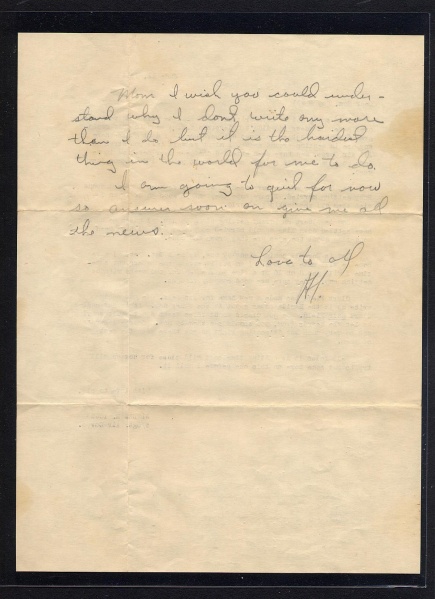 Mom I wish you could under-
stand why I dont write any more
than I do but it is the hardest
thing in the world for me to do.
I am going to quit for now
so answer soon an give me all
the news.
Love to all